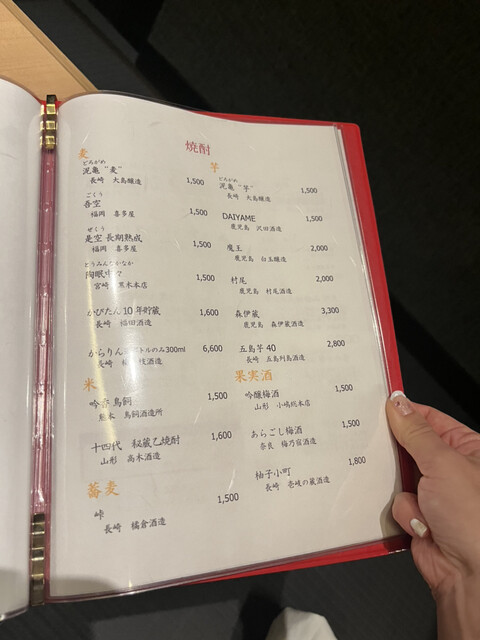 焼酎
麦
どろがめ
泥亀 “麦” 1,500
長崎 大島醸造
ごくう
吾空 1,500
福岡 喜多屋
ぜくう
是空 長期熟成 1,500
福岡 喜多屋
とうみんなかなか
陶眠中々 1,500
宮崎 黒木本店
かぴたん 10年貯蔵 1,600
長崎 福田酒造
からりん ボトルのみ300ml 6,600
長崎
米
吟香鳥飼 1,500
熊本 鳥飼酒造所
十四代 秘蔵乙焼酎 1,600
山形 高木酒造
蕎麦
峠 1,500
長崎 橘倉酒造
芋
どろがめ
泥亀 “芋” 1,500
長崎 大島醸造
DAIYAME 1,500
鹿児島 浜田酒造
魔王 2,000
鹿児島 白玉醸造
村尾 2,000
鹿児島 村尾酒造
森伊蔵 3,300
鹿児島 森伊蔵酒造
五島芋 40 2,800
長崎 五島列島酒造
果実酒
吟醸梅酒 1,500
山形 小嶋総本店
あらごし梅酒 1,500
奈良 梅乃宿酒造
柚子小町 1,800
長崎 壱岐の蔵酒造